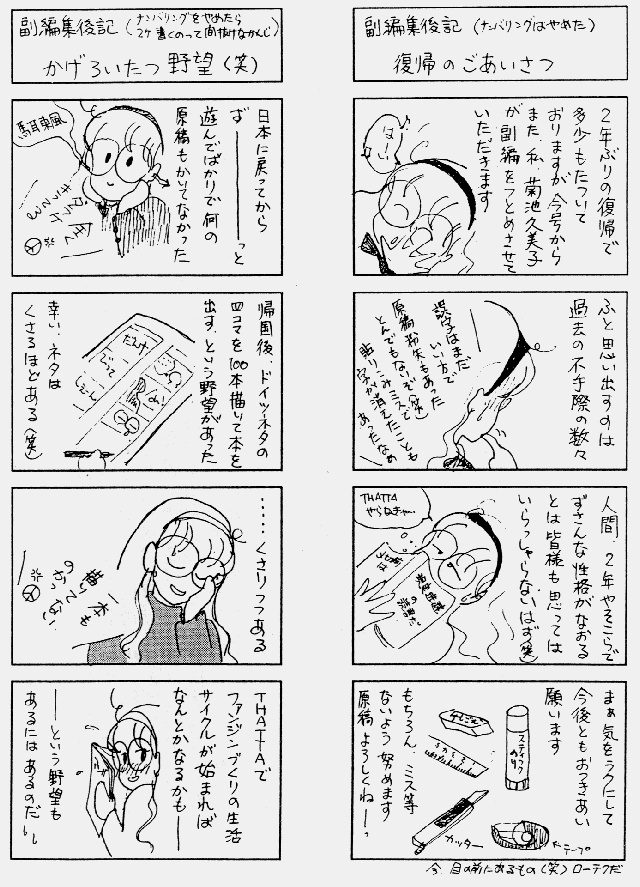 副編集後記(ナンバリングはやめた)
復帰のごあいさつ
2年ぶりの復帰で
多少もたついて
おりますが、今号から
また、私、菊池久美子
が副編をつとめさせて
いただきます
はーい
ふと思い出すのは
過去の不手際の数々
誤字はまだ
いい方で
原稿紛失もあった
とんでもないぞ(笑)
貼りこみミスで
字が消えてたことも
あったなぁ
人間、2年やそこらで
ずさんな性格がなおる
とは皆様も思っては
いらっしゃらないはず(笑)
THATTA
やらねきゃ…
まぁ気をラクにして
今後ともおつきあい
願います
もちろん、ミス等
ないよう努めます
原稿よろしくねーっ
スティックのり
カッター
テープ
今、目の前にあるもの(笑)ローテクだ
副編集後記(ナンバリングをやめたら
2ケ書くのって間抜けなかんじ)
かげろいたつ野望(笑)
日本に戻ってから
ず————っと
遊んでばかりで何の
原稿もかいてなかった
馬耳東風
帰国後、ドイツ・ネタの
四コマを100本描いて本を
出す、という野望があった
幸い、ネタは
くさるほどある(笑)
……くさりつつある
一本も
描いてない
THATTAで
ファンジンづくりの生活
サイクルが始まれば
なんとかなるかも——
——という野望も
あるにはあるのだ